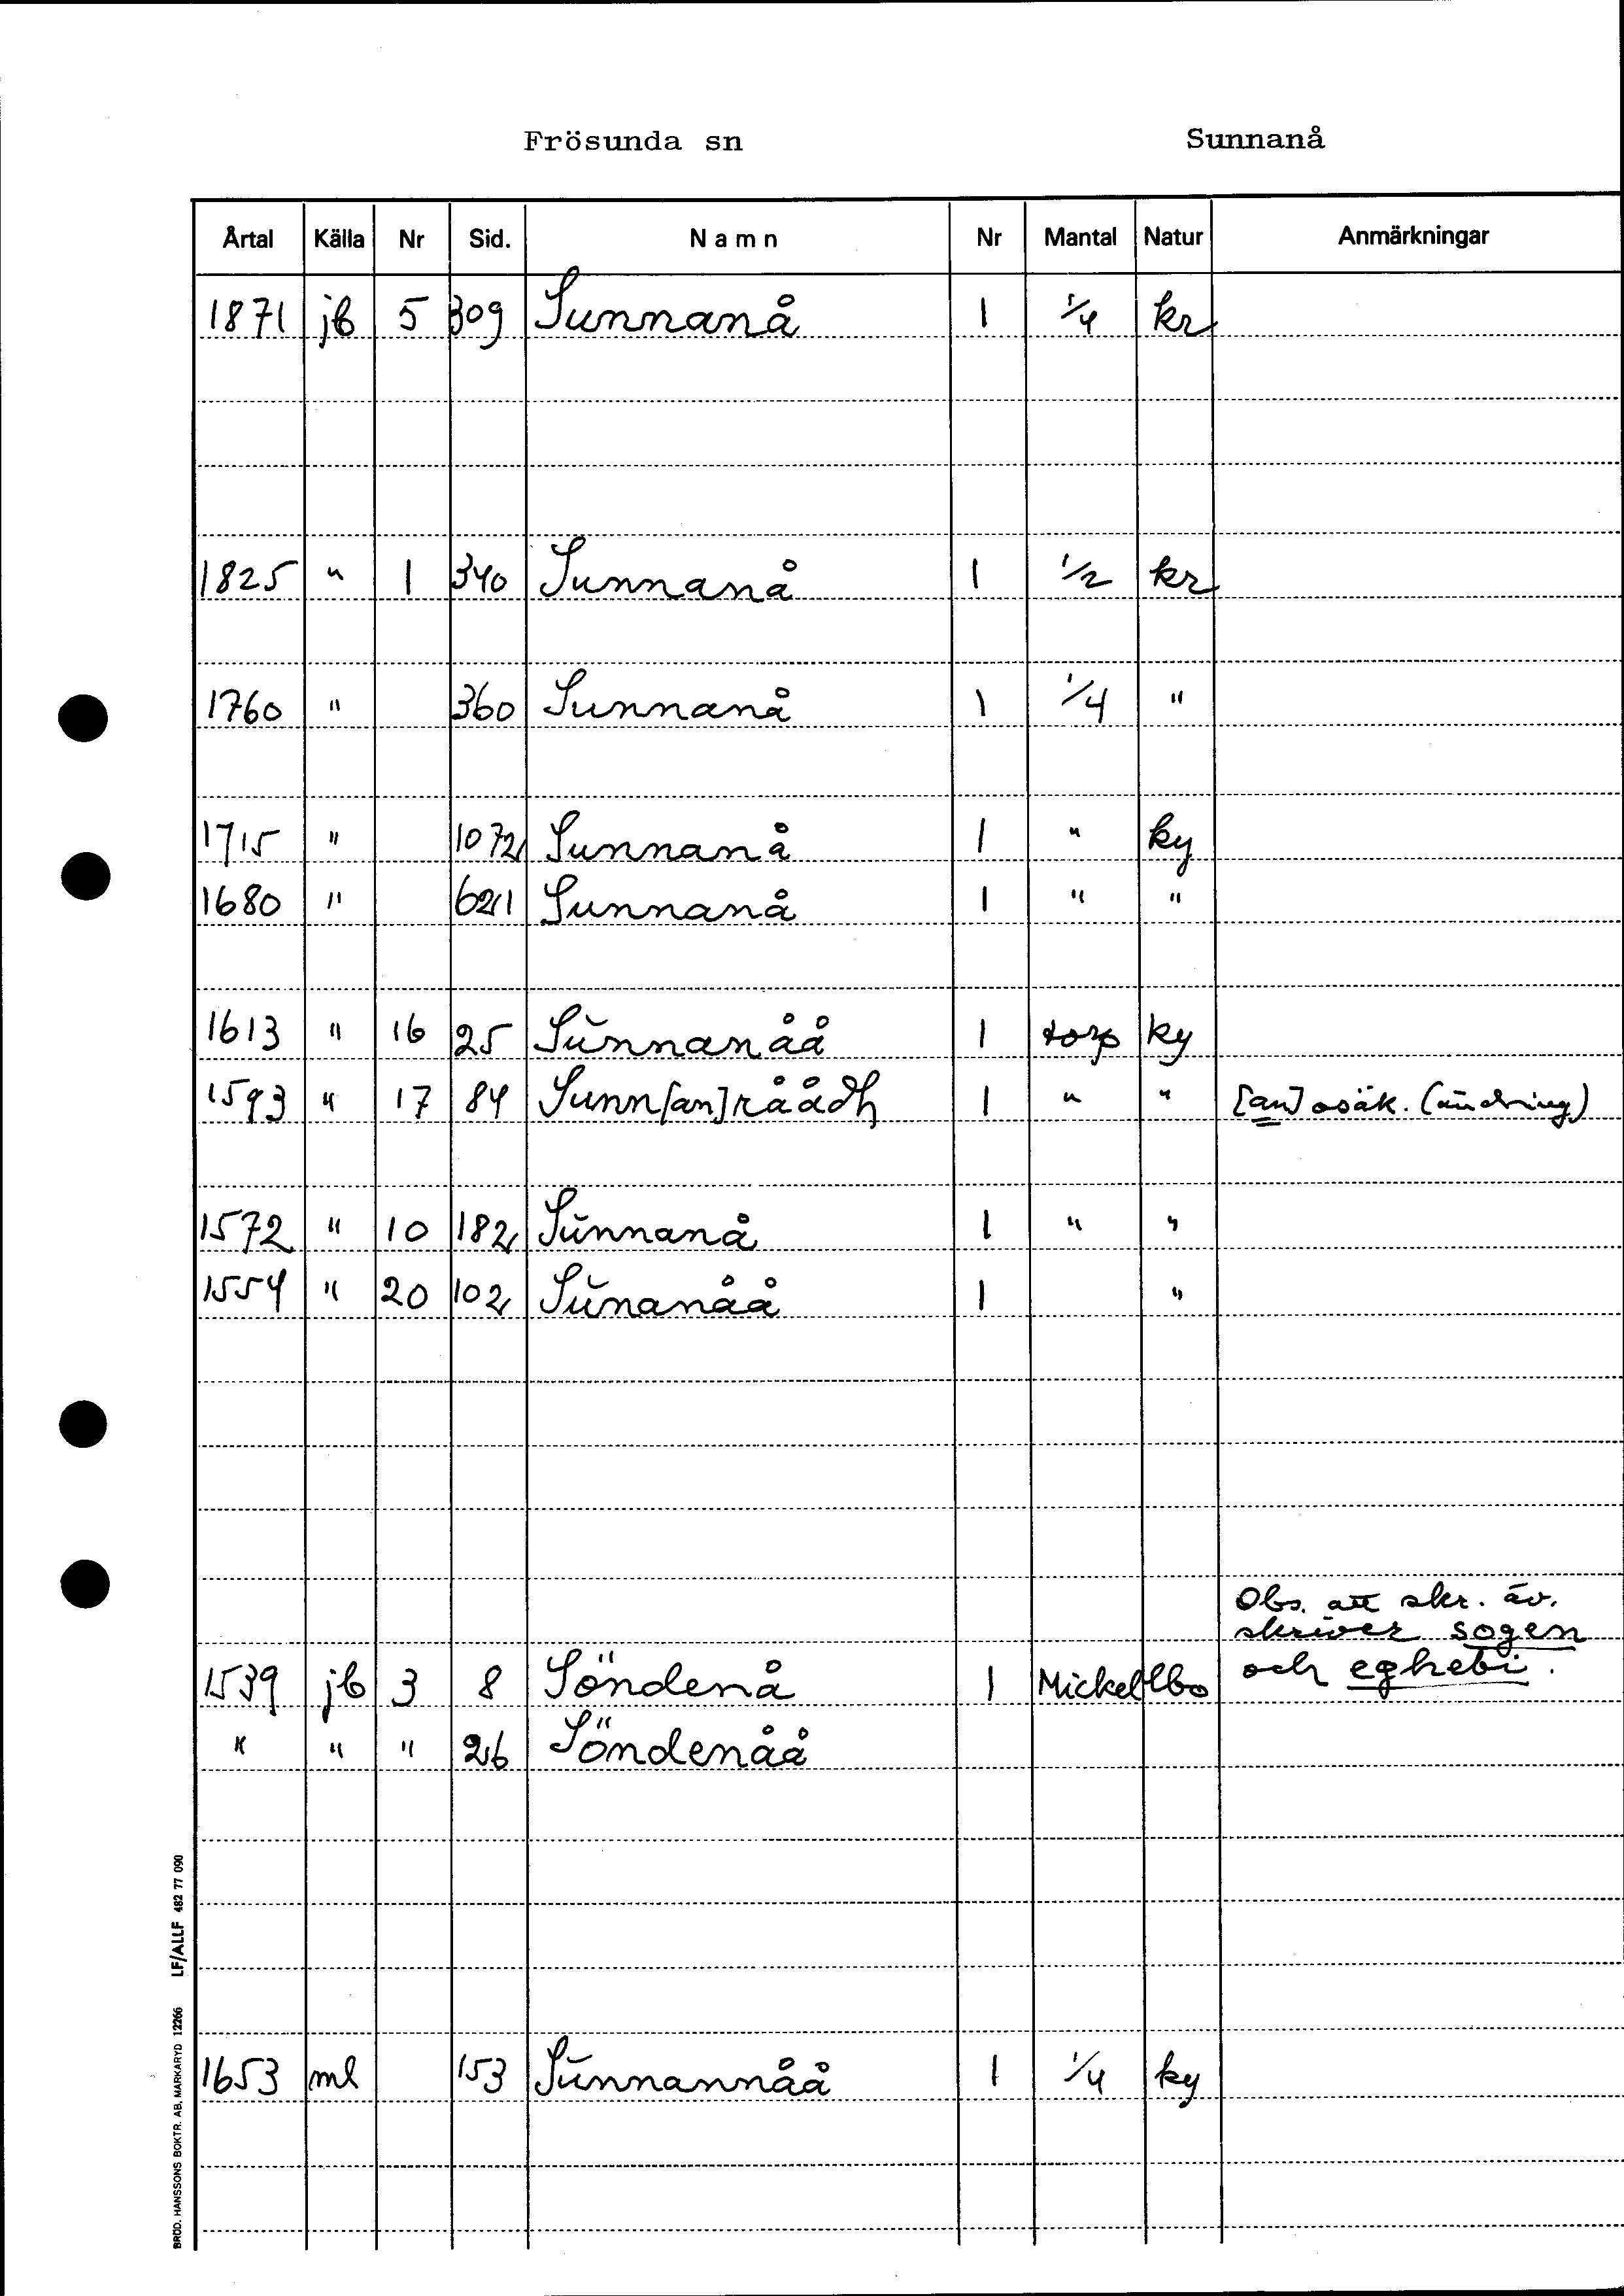 Frösunda sn Sunnanå
Årtal Källa Nr Sid. Namn Nr Mantal Natur Anmärkningar
1871 jb 5 309 Sunnanå 1 1/4 kr
1825 " 1 340 Sunnanå 1 1/2 kr
1760 " 360 Sunnanå 1 1/4 "
1715 " 1072 Sunnanå 1 " ky
1680 " 621 Sunnanå 1 " "
1613 " 16 25 Sŭnnanåå 1 torp ky
1593 " 17 84 Sunn[an]råådh 1 " " [an] osäk. (ändring)
1572 " 10 182 Sŭnnanå 1 " "
1554 " 20 102 Sŭnanåå 1 "
Obs. att skr. äv.
skriver sogen
1539 jb 3 8 Söndenå 1 Mickellbo och eghebi.
" " " 26 Söndenåå
1653 ml 153 Sŭnnannåå 1 1/4 ky
BRÖD. HANSSONS BOKTR. AB, MARKARYD 12266 LF/ALLF 482 77 090